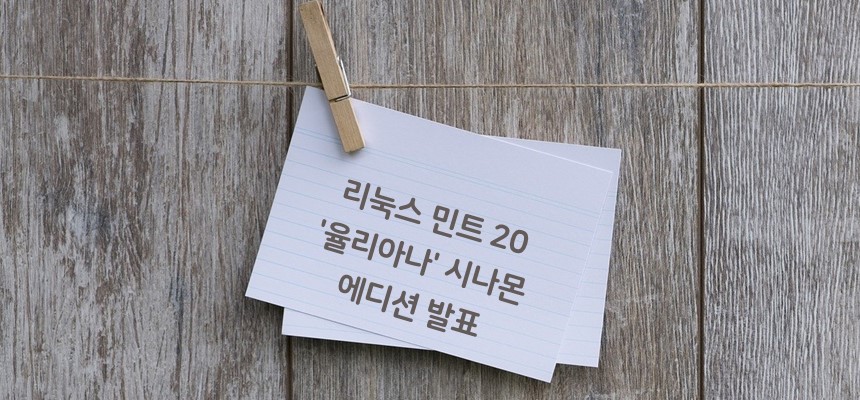 리눅스 민트 20
'율리아나' 시나몬
에디션 발표